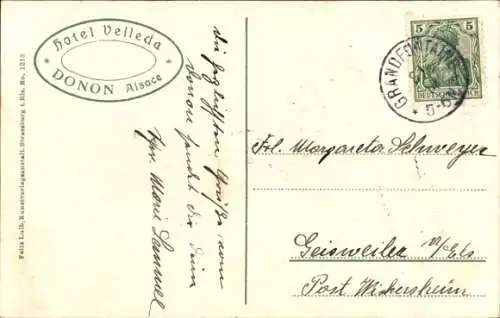 Hotel Velleda
DONON Alsace
Felix Luib, Kunstverlagsanstalt, Strassburg i. Els. No. 1218
Die herzlichsten Grüße vom
Donon sendet dir dein
Marie
5 5
DEUTSCHES REICH
GRANDFONTAINE
5-6
Frl. Margareta Schweyer
Geisweiler i/Els
Post Wickersheim